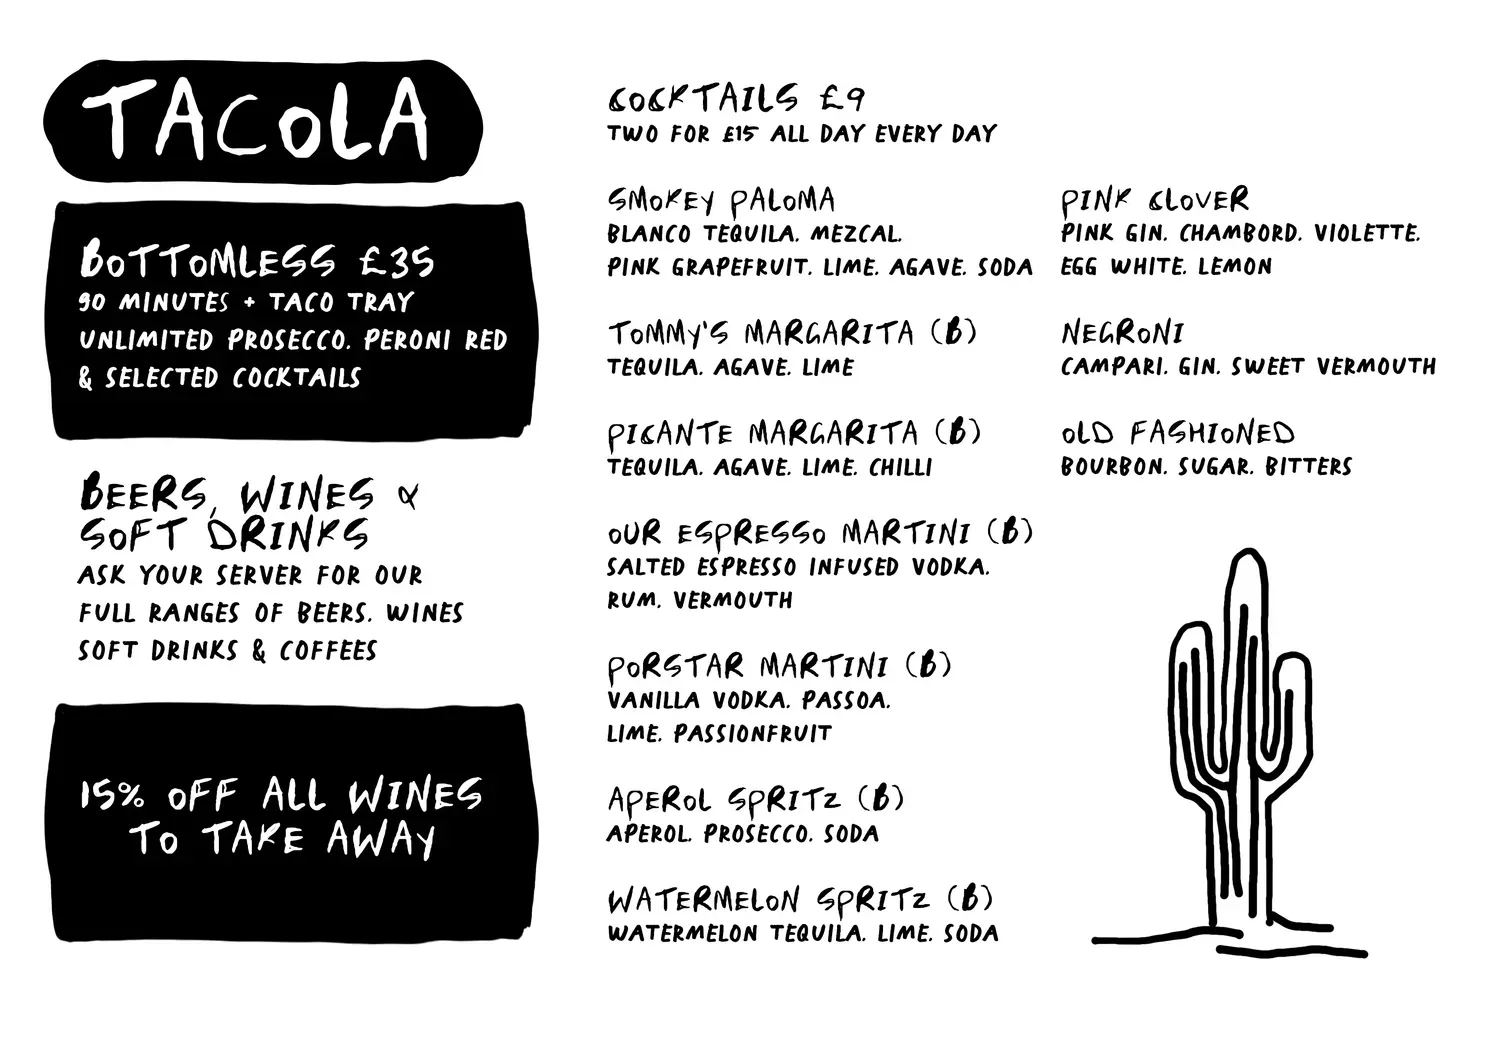 TACOLA
BOTTOMLESS £35
90 MINUTES + TACO TRAY
UNLIMITED PROSECCO. PERONI RED
& SELECTED COCKTAILS
BEERS, WINES &
SOFT DRINKS
ASK YOUR SERVER FOR OUR
FULL RANGES OF BEERS. WINES
SOFT DRINKS & COFFEES
15% OFF ALL WINES
TO TAKE AWAY
COCKTAILS £9
TWO FOR £15 ALL DAY EVERY DAY
SMOKEY PALOMA
BLANCO TEQUILA. MEZCAL.
PINK GRAPEFRUIT. LIME. AGAVE. SODA
TOMMY'S MARGARITA (B)
TEQUILA. AGAVE. LIME
PICANTE MARGARITA (B)
TEQUILA. AGAVE. LIME. CHILLI
OUR ESPRESSO MARTINI (B)
SALTED ESPRESSO INFUSED VODKA.
RUM. VERMOUTH
PORSTAR MARTINI (B)
VANILLA VODKA. PASSOA.
LIME. PASSIONFRUIT
APEROL SPRITZ (B)
APEROL. PROSECCO. SODA
WATERMELON SPRITZ (B)
WATERMELON TEQUILA. LIME. SODA
PINK CLOVER
PINK GIN. CHAMBORD. VIOLETTE.
EGG WHITE. LEMON
NEGRONI
CAMPARI. GIN. SWEET VERMOUTH
OLD FASHIONED
BOURBON. SUGAR. BITTERS